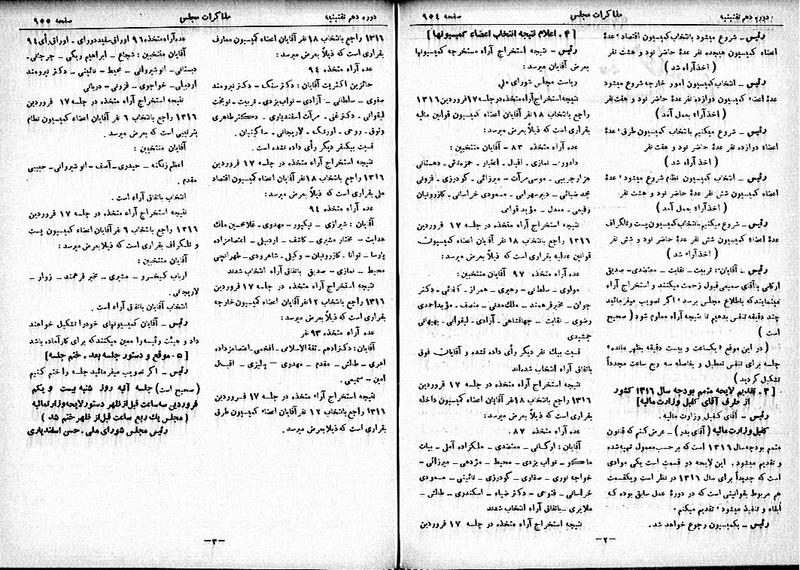 دوره دهم تقنینیه
مذاکرات مجلس
صفحه ۹۵۴
رئیس ـ شروع میشود بانتخاب کمیسیون اقتصاد ؛ عدهٔ
اعضاء کمیسیون هیجده نفر عدهٔ حاضر نود و هشت نفر
( اخذ آراء شد )
رئیس ـ انتخاب کمیسیون امور خارجه شروع میشود
عدهٔ اعضاء کمیسیون دوازده نفر عدهٔ حاضر نود و هفت نفر
( اخذ آراء بعمل آمد )
رئیس ـ شروع میکنیم بانتخاب کمیسیون طرق ؛ عدهٔ
اعضاء دوازده نفر عدهٔ حاضر نود و هفت نفر
( اخذ آراء شد )
رئیس ـ انتخاب کمیسیون نظام شروع میشود ؛ عدهٔ
اعضاء کمیسیون شش نفر عدهٔ حاضر نود و شش نفر
( اخذ آراء بعمل آمد )
رئیس ـ شروع میکنیم بانتخاب کمیسیون پست و تلگراف
عدهٔ اعضاء کمیسیون شش نفر عدهٔ حاضر نود و شش نفر
( اخذ آراء شد )
رئیس ـ آقایان : تربیت ـ نقابت ـ معتضدی ـ صدیق
اورنگی با آقای سمیعی قبول زحمت میکنند و استخراج آراء
مینمایند که باطلاع مجلس برسد ؛ اگر تصویب میفرمائید
چند دقیقه تنفس بدهیم تا نتیجه آراء معلوم شود ( صحیح
است )
( در این موقع « یکساعت و بیست دقیقه بظهر مانده »
جلسه برای تنفس تعطیل و بفاصله سه ربع ساعت مجدداً
تشکیل گردید )
[ ۳ ـ تقدیم لایحه متمم بودجه سال ۱۳۱۶ کشور
از طرف آقای کفیل وزارت مالیه ]
رئیس ـ آقای کفیل وزارت مالیه .
کفیل وزارت مالیه ( آقای بدر ) ـ عرض کنم که قانون
متمم بودجه سال ۱۳۱۶ است که بر حسب معمول تهیه شده
و تقدیم میشود . این لایحه در قسمت است یکی موادی
است که جدیداً برای سال ۱۳۱۶ در نظر است و یکقسمت
هم مربوط بقوانینی است که در دورهٔ عمل سابق بوده که
ابقاء و تنفیذ میشود ؛ تقدیم میکنم .
رئیس ـ بکمیسیون رجوع خواهد شد .
[ ۴ ـ اعلام نتیجه انتخاب اعضاء کمیسیونها ]
رئیس ـ نتیجه استخراج آراء مستخرجه کمیسیونها
بعرض آقایان میرسد :
ریاست مجلس شورای ملی
نتیجه استخراج آراء متخذه در جلسه ۱۷ فروردین ۱۳۱۶
راجع بانتخاب ۱۸ نفر آقایان اعضاء کمیسیون قوانین مالیه
بقراری است که ذیلاً بعرض میرسد :
عده آراء متخذه ۸۳ ـ آقایان منتخبین :
داور ـ نمازی ـ اقبل ـ اعتبار ـ حمزه تاش ـ دهستانی
هزارجریبی ـ موسی مرآت ـ میرزائی ـ گودرزی ـ فزونی
مجد ضیائی ـ دبیر سهرابی ـ مسعودی خراسانی ـ کازرونیان
رفیعی ـ معدل ـ مؤید قوامی
نتیجه استخراج آراء متخذه در جلسه ۱۷ فروردین
۱۳۱۶ راجع بانتخاب ۱۸ نفر آقایان اعضاء کمیسیون
قوانین عدلیه بقراری است که ذیلاً بعرض میرسد :
عده آراء متخذه ۹۷ آقایان منتخبین :
مولوی ـ سلطانی ـ رهبری ـ همراز ـ کفائی ـ دکتر
جوان ـ مخبر فرهمند ـ ملک مدنی ـ منصف ـ مؤید احمدی
رضوی ـ نقابت ـ جهانشاهی ـ آزادی ـ لیقوانی ـ بهبهانی
جمشیدی
قسمت بیک نفر دیگر رأی داده نشده و آقایان فوق
باتفاق آراء انتخاب شده‌اند
نتیجه استخراج آراء متخذه در جلسه ۱۷ فروردین
۱۳۱۶ راجع بانتخاب ۱۸ نفر آقایان اعضاء کمیسیون داخله
بقراری است که ذیلاً بعرض میرسد :
عده آراء متخذه ۸۷
آقایان : اورکانی ـ معتضدی ـ ملکزاده آملی ـ بیات
ماکو ـ نواب یزدی ـ محیط ـ مژدهی ـ میرزائی ـ
خواجه نوری ـ صفاری ـ گودرزی ـ نائینی ـ مسعودی
خراسانی ـ فتوحی ـ دکتر ضیاء ـ اسکندری ـ طالش ـ
ملایری ـ باتفاق آراء انتخاب شدند
نتیجه استخراج آراء متخذه در جلسه ۱۷ فروردین
ـ ۲ ـ
دوره دهم تقنینیه
مذاکرات مجلس
صفحه ۹۵۵
۱۳۱۶ راجع بانتخاب ۱۸ نفر آقایان اعضاء کمیسیون معارف
بقراری است که ذیلاً بعرض میرسد :
عده آراء متخذه ۹۴
حائزین اکثریت آقایان : دکتر سنگ ـ دکتر نیرومند
صفوی ـ سلطانی ـ آزادی ـ نواب یزدی ـ تربیت ـ نوبخت
لیقوانی ـ دکتر غنی ـ مرآت اسفندیاری ـ دکتر طاهری
وثوق ـ روحی ـ اورنگ ـ لاریجانی ـ ساگینیان .
قسمت بیکنفر دیگر رأی داده نشده است .
نتیجه استخراج آراء متخذه در جلسه ۱۷ فروردین
۱۳۱۶ راجع بانتخاب ۱۸ نفر آقایان اعضاء کمیسیون اقتصاد
ملی بقراری است که ذیلاً بعرض میرسد :
عده آراء متخذه ۹۴
آقایان : شیرازی ـ نیکپور ـ مهدوی ـ غلامحسین ملک
هدایت ـ مختار مشیری ـ کاشف ـ اردبیلی ـ اعتصام زاده
پارسا ـ توانا ـ کازرونیان ـ وکیل ـ شاهرودی ـ طهرانچی
محیط ـ نمازی ـ صدیق باتفاق آراء انتخاب شدند
نتیجه استخراج آراء متخذه در جلسه ۱۷ فروردین
۱۳۱۶ راجع بانتخاب ۱۲ نفر آقایان اعضاء کمیسیون خارجه
بقراری است که ذیلاً بعرض میرسد :
عده آراء متخذه ۹۳ نفر
آقایان : دکتر ادهم ـ ثقة الاسلامی ـ افخمی ـ اعتصام زاده
اهری ـ طالش ـ مقدم ـ مهدوی ـ پالیزی ـ اقبال
امین ـ سمیعی .
نتیجه استخراج آراء متخذه در جلسه ۱۷ فروردین
۱۳۱۶ راجع بانتخاب ۱۲ نفر آقایان اعضاء کمیسیون طرق
بقراری است که ذیلاً بعرض میرسد .
عده آراء متخذه ۹۶ اوراق سفید دورای ـ اوراق رأی ۹۴
آقایان منتخبین : شجاع ـ ابراهیم ریگی ـ جرجانی ـ
دبستانی ـ انوشیروانی ـ محیط ـ نائینی ـ دکتر نیرومند
اردبیلی ـ خواجوی ـ قزونی ـ دربانی
نتیجه استخراج آراء متخذه در جلسه ۱۷ فروردین
۱۳۱۶ راجع بانتخاب ۶ نفر آقایان اعضاء کمیسیون نظام
بترتیبی است که بعرض میرسد .
آقایان منتخبین :
اعظم زنگنه ـ حیدری ـ آصف ـ انوشیروانی ـ حبیبی
مقدم .
انتخاب باتفاق آراء است .
نتیجه استخراج آراء متخذه در جلسه ۱۷ فروردین
۱۳۱۶ راجع بانتخاب ۶ نفر آقایان اعضاء کمیسیون پست
و تلگراف بقراری است که ذیلا بعرض میرسد :
آقایان منتخبین :
ارباب کیخسرو ـ مشیری ـ مخبر فرهمند ـ زوار ـ
لاریجانی .
انتخاب آقایان باتفاق آراء است .
رئیس ـ آقایان کمیسیونهای خود را تشکیل خواهند
داد و هیئت رئیسه را معین میکنند که برای کار آماده باشد
[ ۵ ـ موقع و دستور جلسه بعد ـ ختم جلسه ]
رئیس ـ اگر تصویب میفرمائید جلسه را ختم کنیم
( صحیح است ) جلسه آتیه روز شنبه بیست و یکم
فروردین سه ساعت قبل از ظهر دستور لایحه وزارت مالیه
( مجلس یک ربع ساعت قبل از ظهر ختم شد )
رئیس مجلس شورای ملی ـ حسن اسفندیاری
ـ ۳ ـ